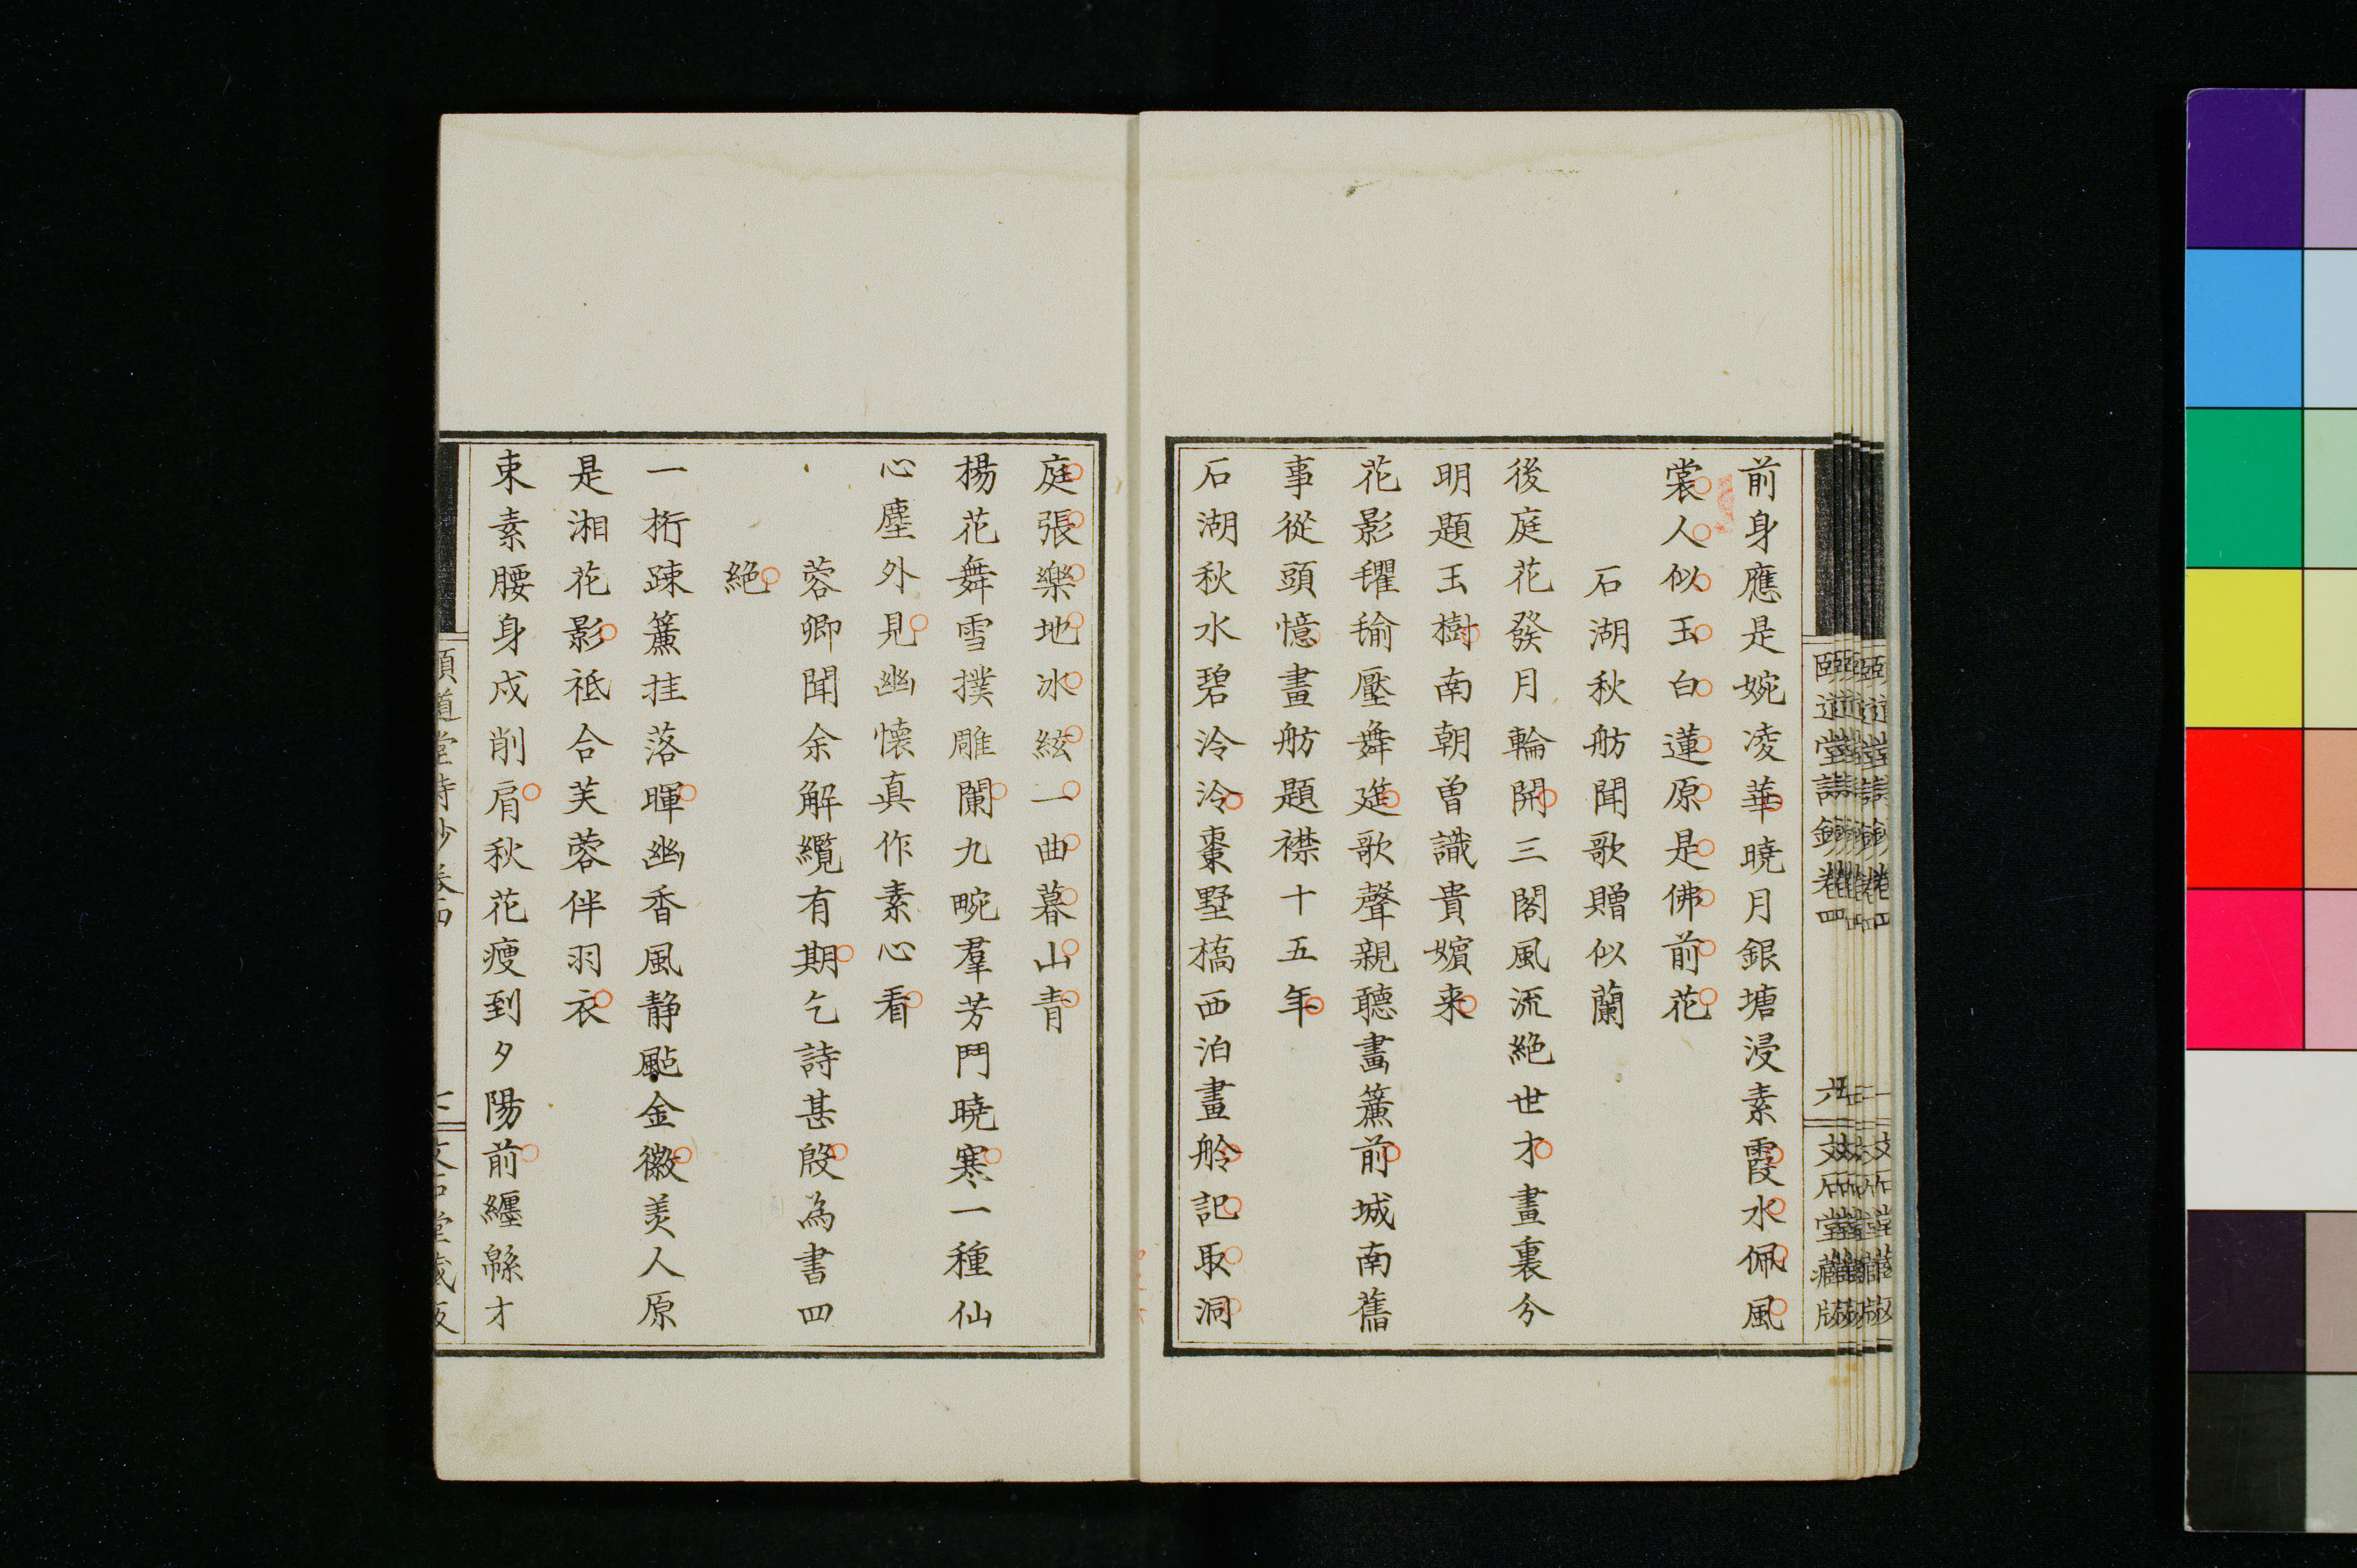 前身應是婉凌華曉月銀塘浸素霞水佩風
裳人似玉白蓮原是佛前花
石湖秋舫聞歌贈似蘭
後庭花發月輪開三閣風流絕世才畫裏分
明題玉樹南朝曾識貴嬪来
花影氍毹壓舞筵歌聲親聽畵簾前城南舊
事從頭憶畫舫題襟十五年
石湖秋水碧泠泠棗墅橋西泊畫舲記取洞
庭張樂地冰絃一曲暮山青
楊花舞雪撲雕闌九畹羣芳鬥曉寒一種仙
心塵外見幽懐真作素心看
蓉卿聞余解纜有期乞詩甚殷為書四
絕
一桁疎簾挂落暉幽香風静颭金徽美人原
是湘花影祗合芙蓉伴羽衣
束素腰身戍削肩秋花瘦到夕陽前纏緜才
頤道堂詩鈔卷四
文石堂藏版